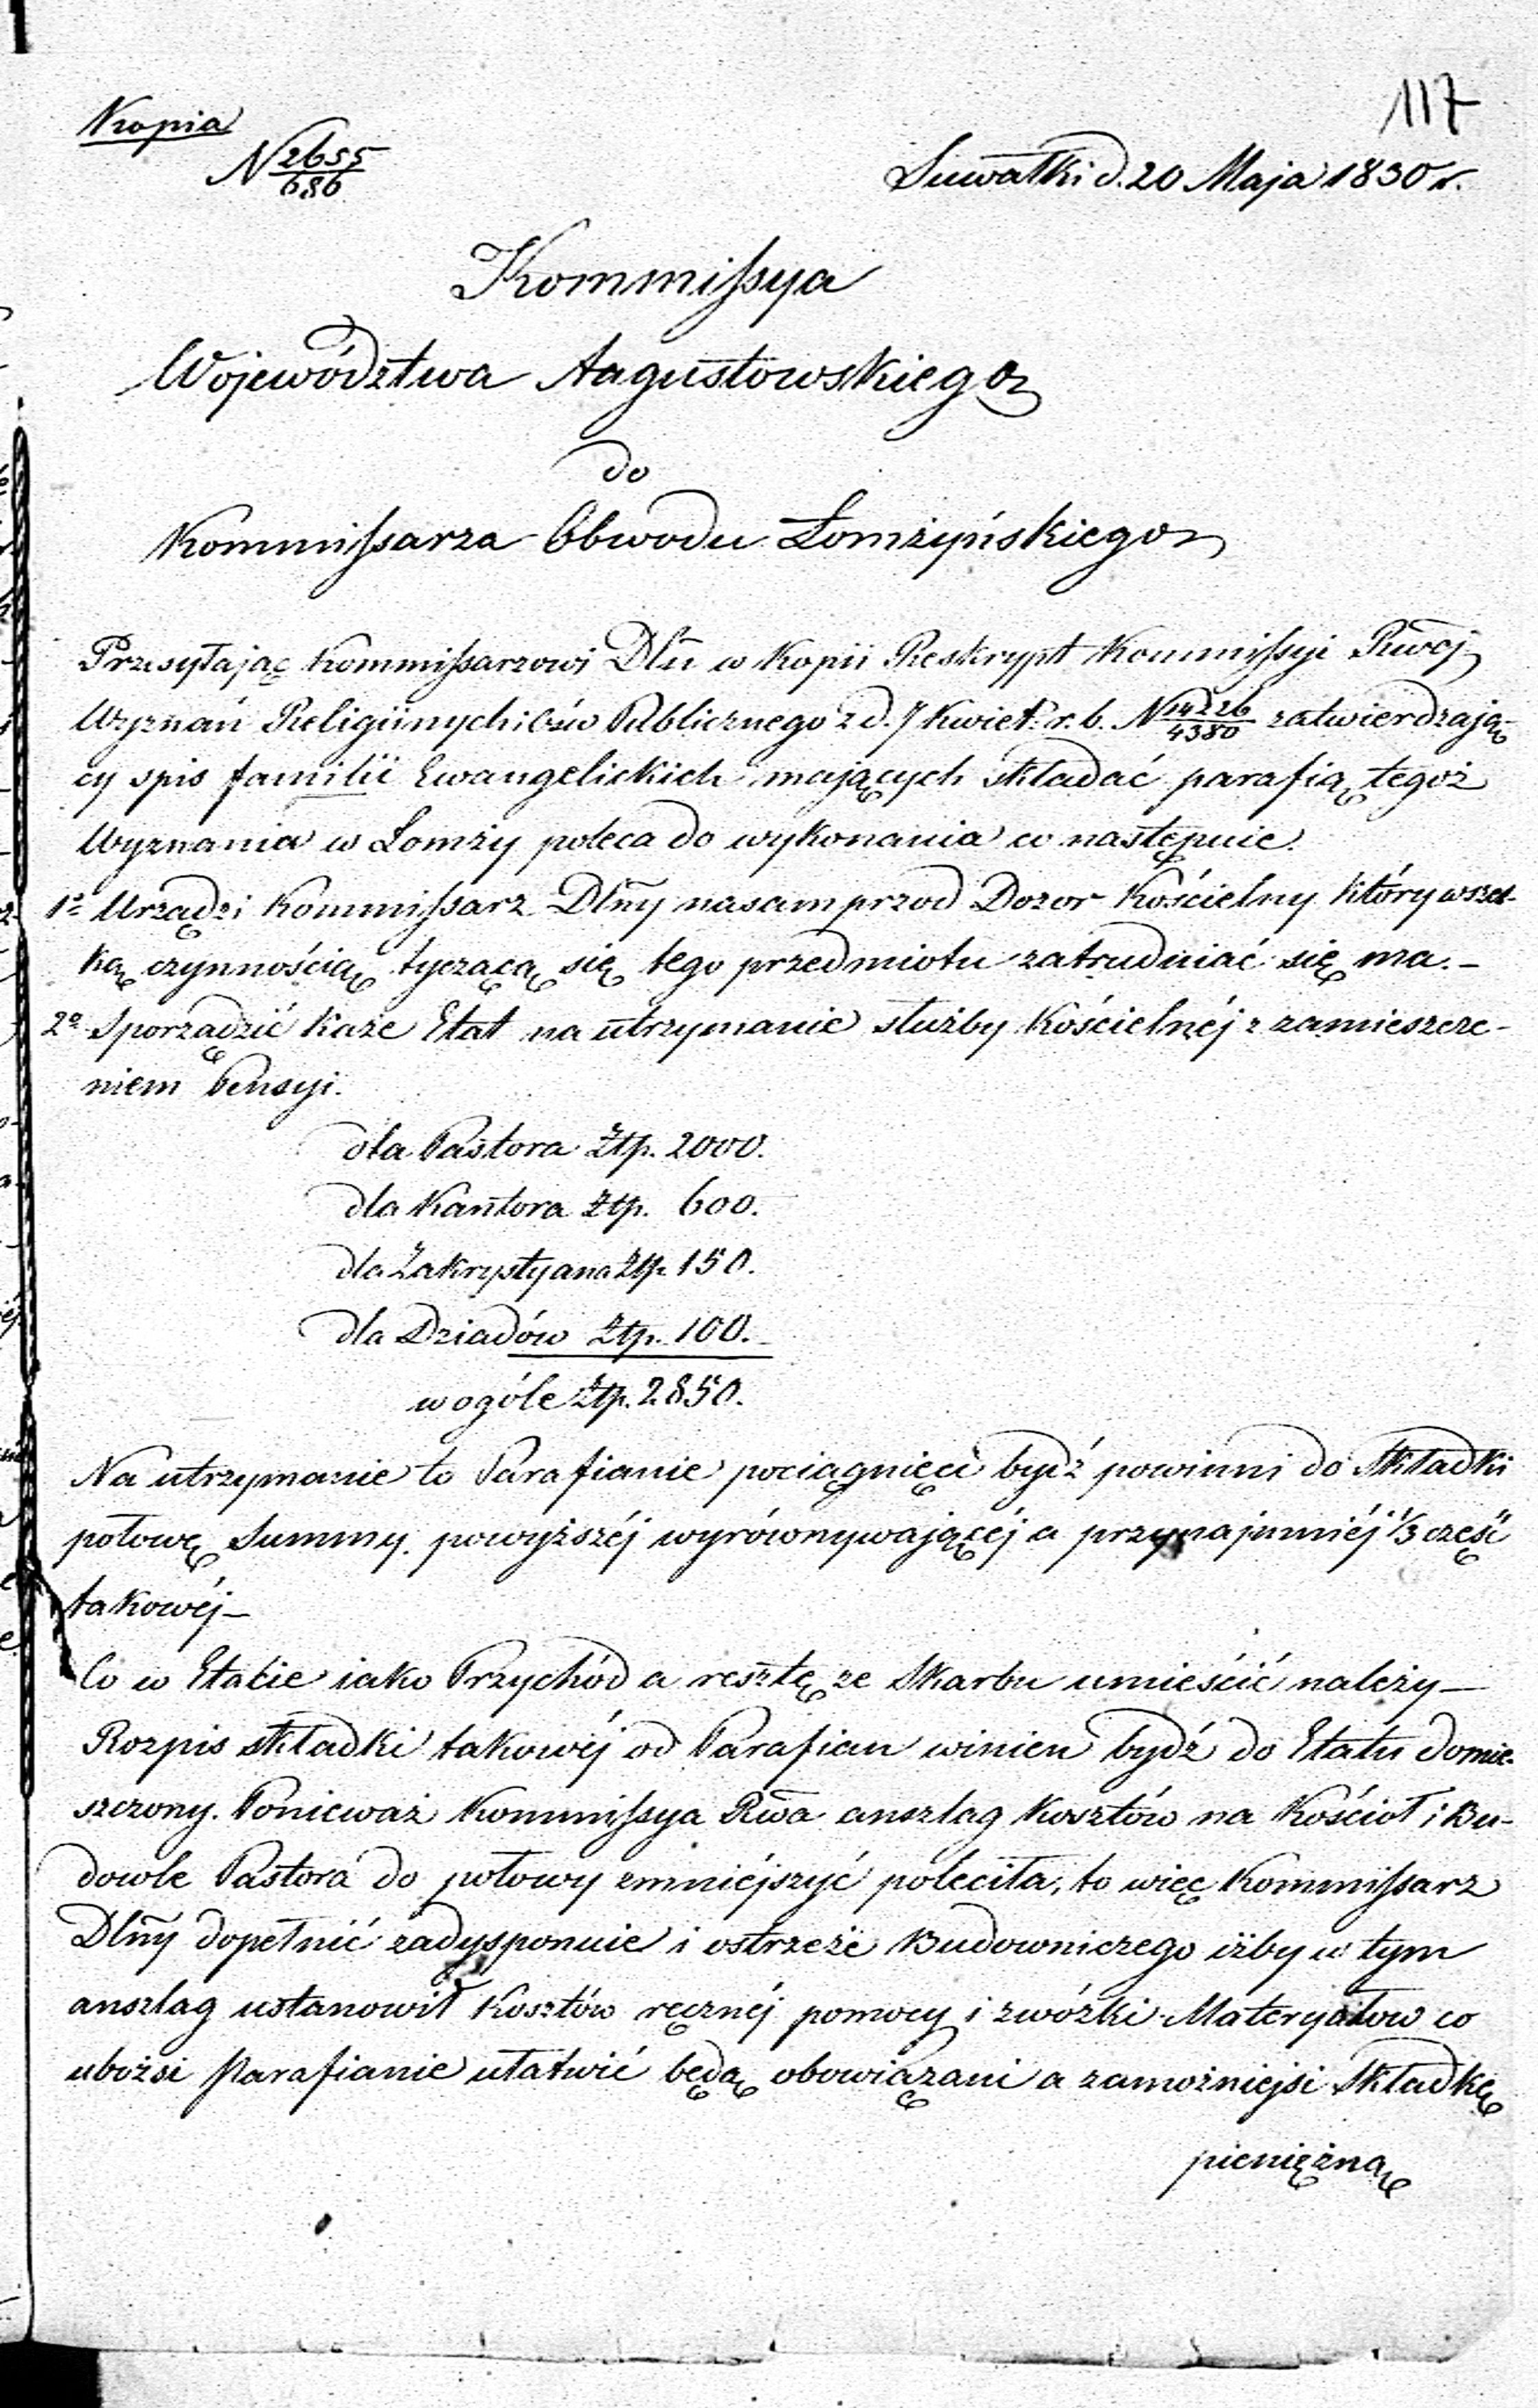 117
Kopia
N 2655/686
Suwałki d. 20 Maja 1830 r.
Kommissya
Województwa Augustowskiego
do
Kommissarza Obwodu Łomżyńskiego
Przesyłając Kommissarzowi Dłu w Kopii Reskrypt Kommissyi Rwej
Wyznań Religiinych i Ośw Publicznego z d. 7 Kwiet: r. b. N 14226/4380 zatwierdzają-
cy spis familii Ewangelickich mających składać parafią tegoż
Wyznania w Łomży poleca do wykonania co następuie.
1o Urządzi Kommissarz Dłny nasamprzod Dozor Kościelny który wszel-
ką czynnością tyczącą się tego przedmiotu zatrudniać się ma. –
2o Sporządzić każe Etat na utrzymanie służby Kościelnéj z zamieszcze-
niem Pensyi.
dla Pastora Złp. 2000.
dla Kantora Złp. 600.
dla Zakrystyana Złp. 150.
dla Dziadów Złp. 100. –
wogóle Złp. 2850.
Na utrzymanie to Parafianie pociągnięci bydź powinni do Składki
połowę Summy powyższéj wyrównywającéj a przynajmniéj 1/3 część
takowéj –
Co w Etacie iako Przychód a resztę ze Skarbu umieścić należy –
Rozpis składki takowéj od Parafian winien bydź do Etatu domie-
szczony. Ponieważ Kommissya Rwa anszlag Kosztów na Kościoł i Bu-
dowle Pastora do połowy zmniéjszyć poleciła, to więc Kommissarz
Dłny dopełnić zadysponuie i ostrzeże Budowniczego iżby w tym
anszlag ustanowił Kosztów ręcznéj pomocy i zwózki Materyałow co
ubożsi Parafianie ułatwić będą obowiązani a zamożniejsi Składkę
pieniężną